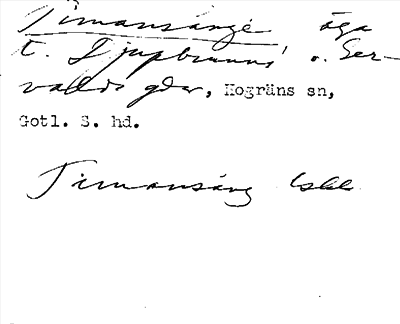 Timansänge äga
t. Djupbrunns o. Ger-
valds gdar, Hogräns sn,
Gotl. S. hd.
Timansäng